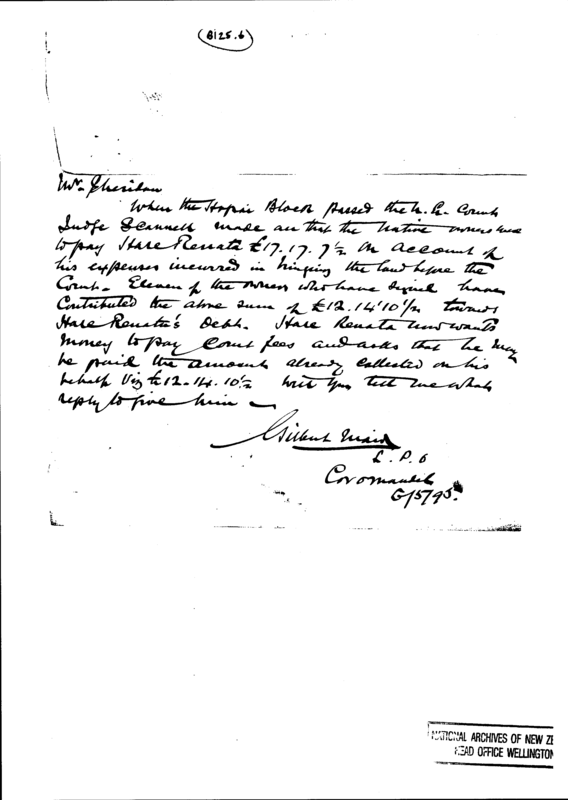 (8125.6)
Mr Sheridan
When the Hapai Block passed the N. L. Court
Judge Scannell made an that the Native owners were
to pay Hare Renata £17.17.7½ on account of
his expenses incurred in bringing the land before the
Court. Eleven of the owners who have signed have
Contributed the above sum of £12.14.10½ towards
Hare Renata's Debt. Hare Renata now wants
Money to pay Court fees and asks that he may
be paid the amounts already collected on his
behalf Viz £12-14.10½ will you tell me what
reply to give him —
Gilbert Mair
L. P. O
Coromandel
6/5/95.
NATIONAL ARCHIVES OF NEW ZE
HEAD OFFICE WELLINGTON